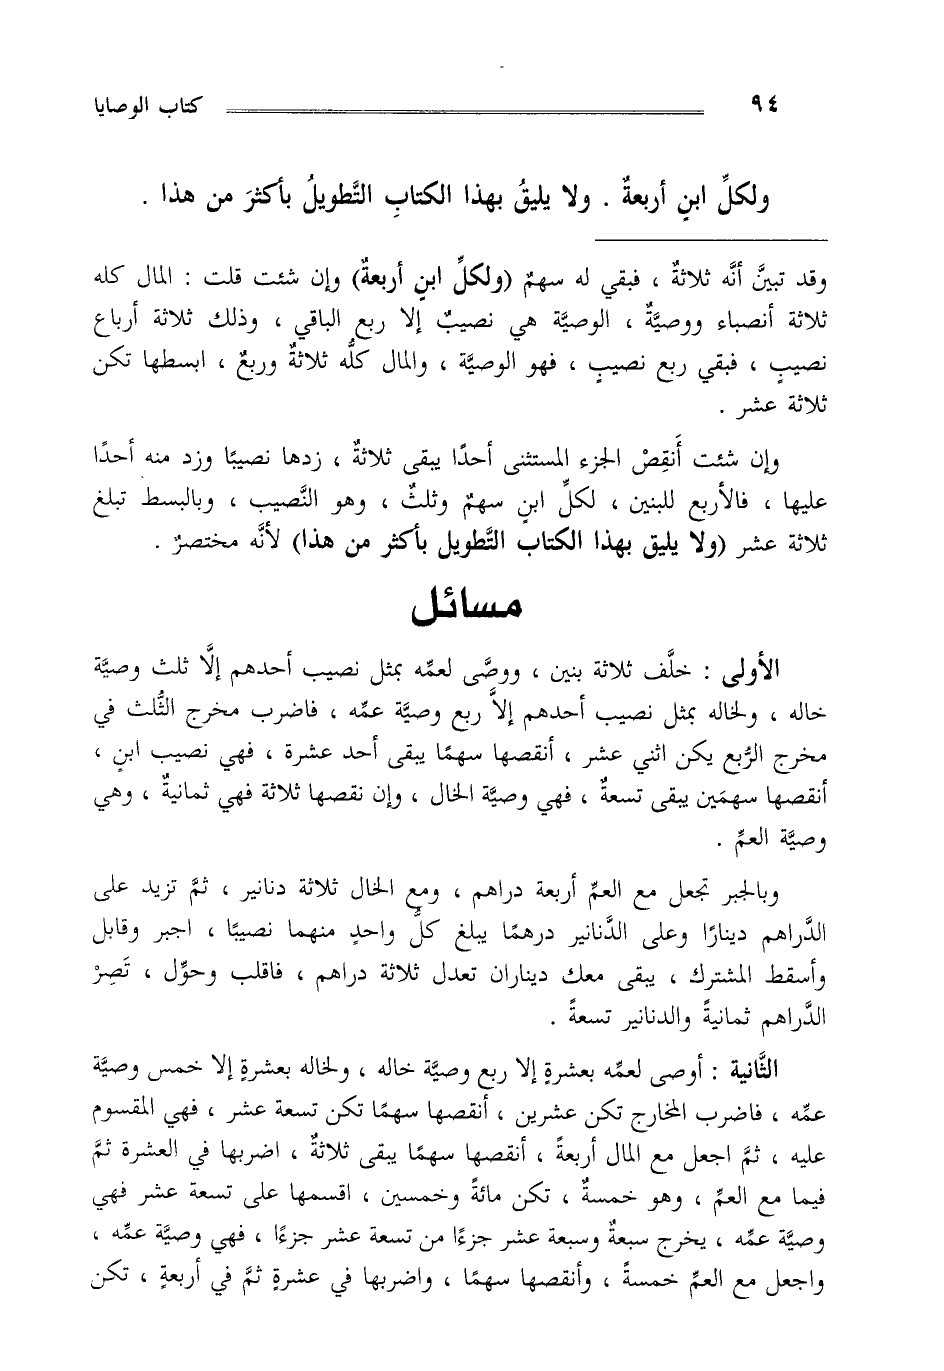 ٩٤ كتاب الوصايا
ولكلِّ ابنٍ أربعةٌ . ولا يليقُ بهذا الكتابِ التَّطويلُ بأكثرَ من هذا .
وقد تبيَّن أنَّه ثلاثةٌ ، فبقي له سهمٌ (ولكلِّ ابنٍ أربعةٌ) وإن شئت قلت : المال كله
ثلاثة أنصباء ووصيَّةٌ ، الوصيَّة هي نصيبٌ إلا ربع الباقي ، وذلك ثلاثة أرباع
نصيبٍ ، فبقي ربع نصيبٍ ، فهو الوصيَّة ، والمال كلُّه ثلاثةٌ وربعٌ ، ابسطها تكن
ثلاثة عشر .
وإن شئت أَنقِصْ الجزء المستثنى أحدًا يبقى ثلاثةٌ ، زدها نصيبًا وزد منه أحدًا
عليها ، فالأربع للبنين ، لكلِّ ابنٍ سهمٌ وثلثٌ ، وهو النَّصيب ، وبالبسط تبلغ
ثلاثة عشر (ولا يليق بهذا الكتاب التَّطويل بأكثر من هذا) لأنَّه مختصرٌ .
مسائل
الأولى : خلَّف ثلاثة بنين ، ووصَّى لعمِّه بمثل نصيب أحدهم إلَّا ثلث وصيَّة
خاله ، ولخاله بمثل نصيب أحدهم إلاَّ ربع وصيَّة عمِّه ، فاضرب مخرج الثُّلث في
مخرج الرُّبع يكن اثني عشر ، أنقصها سهمًا يبقى أحد عشرة ، فهي نصيب ابنٍ ،
أنقصها سهمَين يبقى تسعةٌ ، فهي وصيَّة الخال ، وإن نقصها ثلاثة فهي ثمانيةٌ ، وهي
وصيَّة العمِّ .
وبالجبر تجعل مع العمِّ أربعة دراهم ، ومع الخال ثلاثة دنانير ، ثمَّ تزيد على
الدَّراهم دينارًا وعلى الدَّنانير درهمًا يبلغ كلُّ واحدٍ منهما نصيبًا ، اجبر وقابل
وأسقط المشترك ، يبقى معك ديناران تعدل ثلاثة دراهم ، فاقلب وحوِّل ، تَصِرْ
الدَّراهم ثمانيةً والدنانير تسعةً .
الثَّانية : أوصى لعمِّه بعشرةٍ إلا ربع وصيَّة خاله ، ولخاله بعشرةٍ إلا خمس وصيَّة
عمِّه ، فاضرب المخارج تكن عشرين ، أنقصها سهمًا تكن تسعة عشر ، فهي المقسوم
عليه ، ثمَّ اجعل مع المال أربعةً ، أنقصها سهمًا يبقى ثلاثةٌ ، اضربها في العشرة ثمَّ
فيما مع العمِّ ، وهو خمسةٌ ، تكن مائةً وخمسين ، اقسمها على تسعة عشر فهي
وصيَّة عمِّه ، يخرج سبعةٌ وسبعة عشر جزءًا من تسعة عشر جزءًا ، فهي وصيَّة عمِّه ،
واجعل مع العمِّ خمسةً ، وأنقصها سهمًا ، واضربها في عشرةٍ ثمَّ في أربعةٍ ، تكن